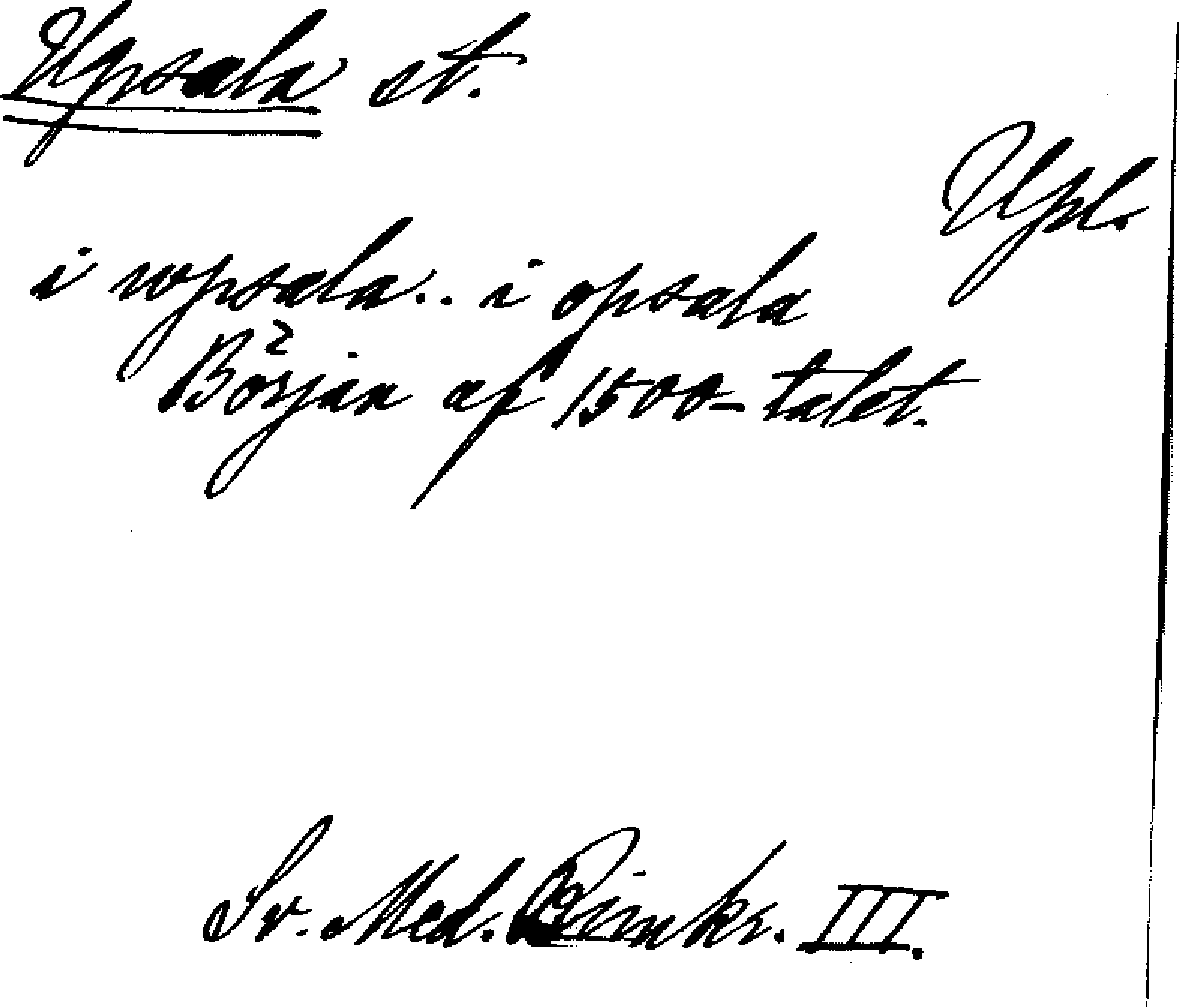 Upsala st.
Upl.
i wpsala.. i opsala
Början af 1500-talet.
Sv. Med. Rimkr. III.